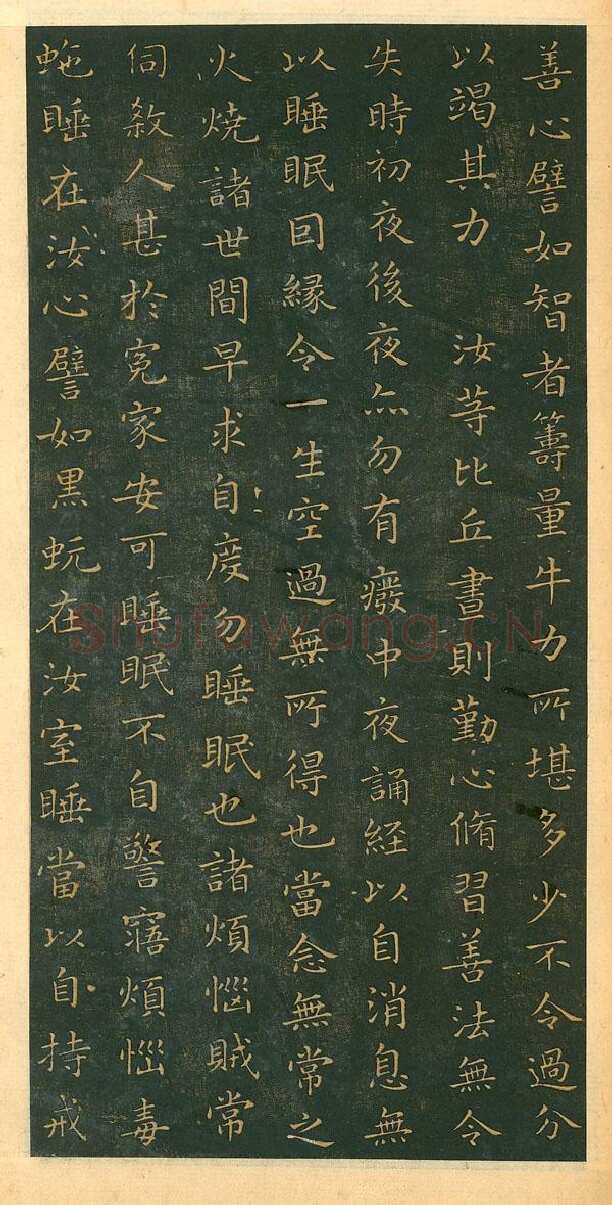 善心譬如智者籌量牛力所堪多少不令過分
以竭其力　汝等比丘晝則勤心脩習善法無令
失時初夜後夜亦勿有癈中夜誦経以自消息無
以睡眠因縁令一生空過無所得也當念無常之
火燒諸世間早求自度勿睡眠也諸煩惱賊常
伺殺人甚於冤家安可睡眠不自警寤煩惱毒
虵睡在汝心譬如黒蚖在汝室睡當以自持戒
Shufawang.CN